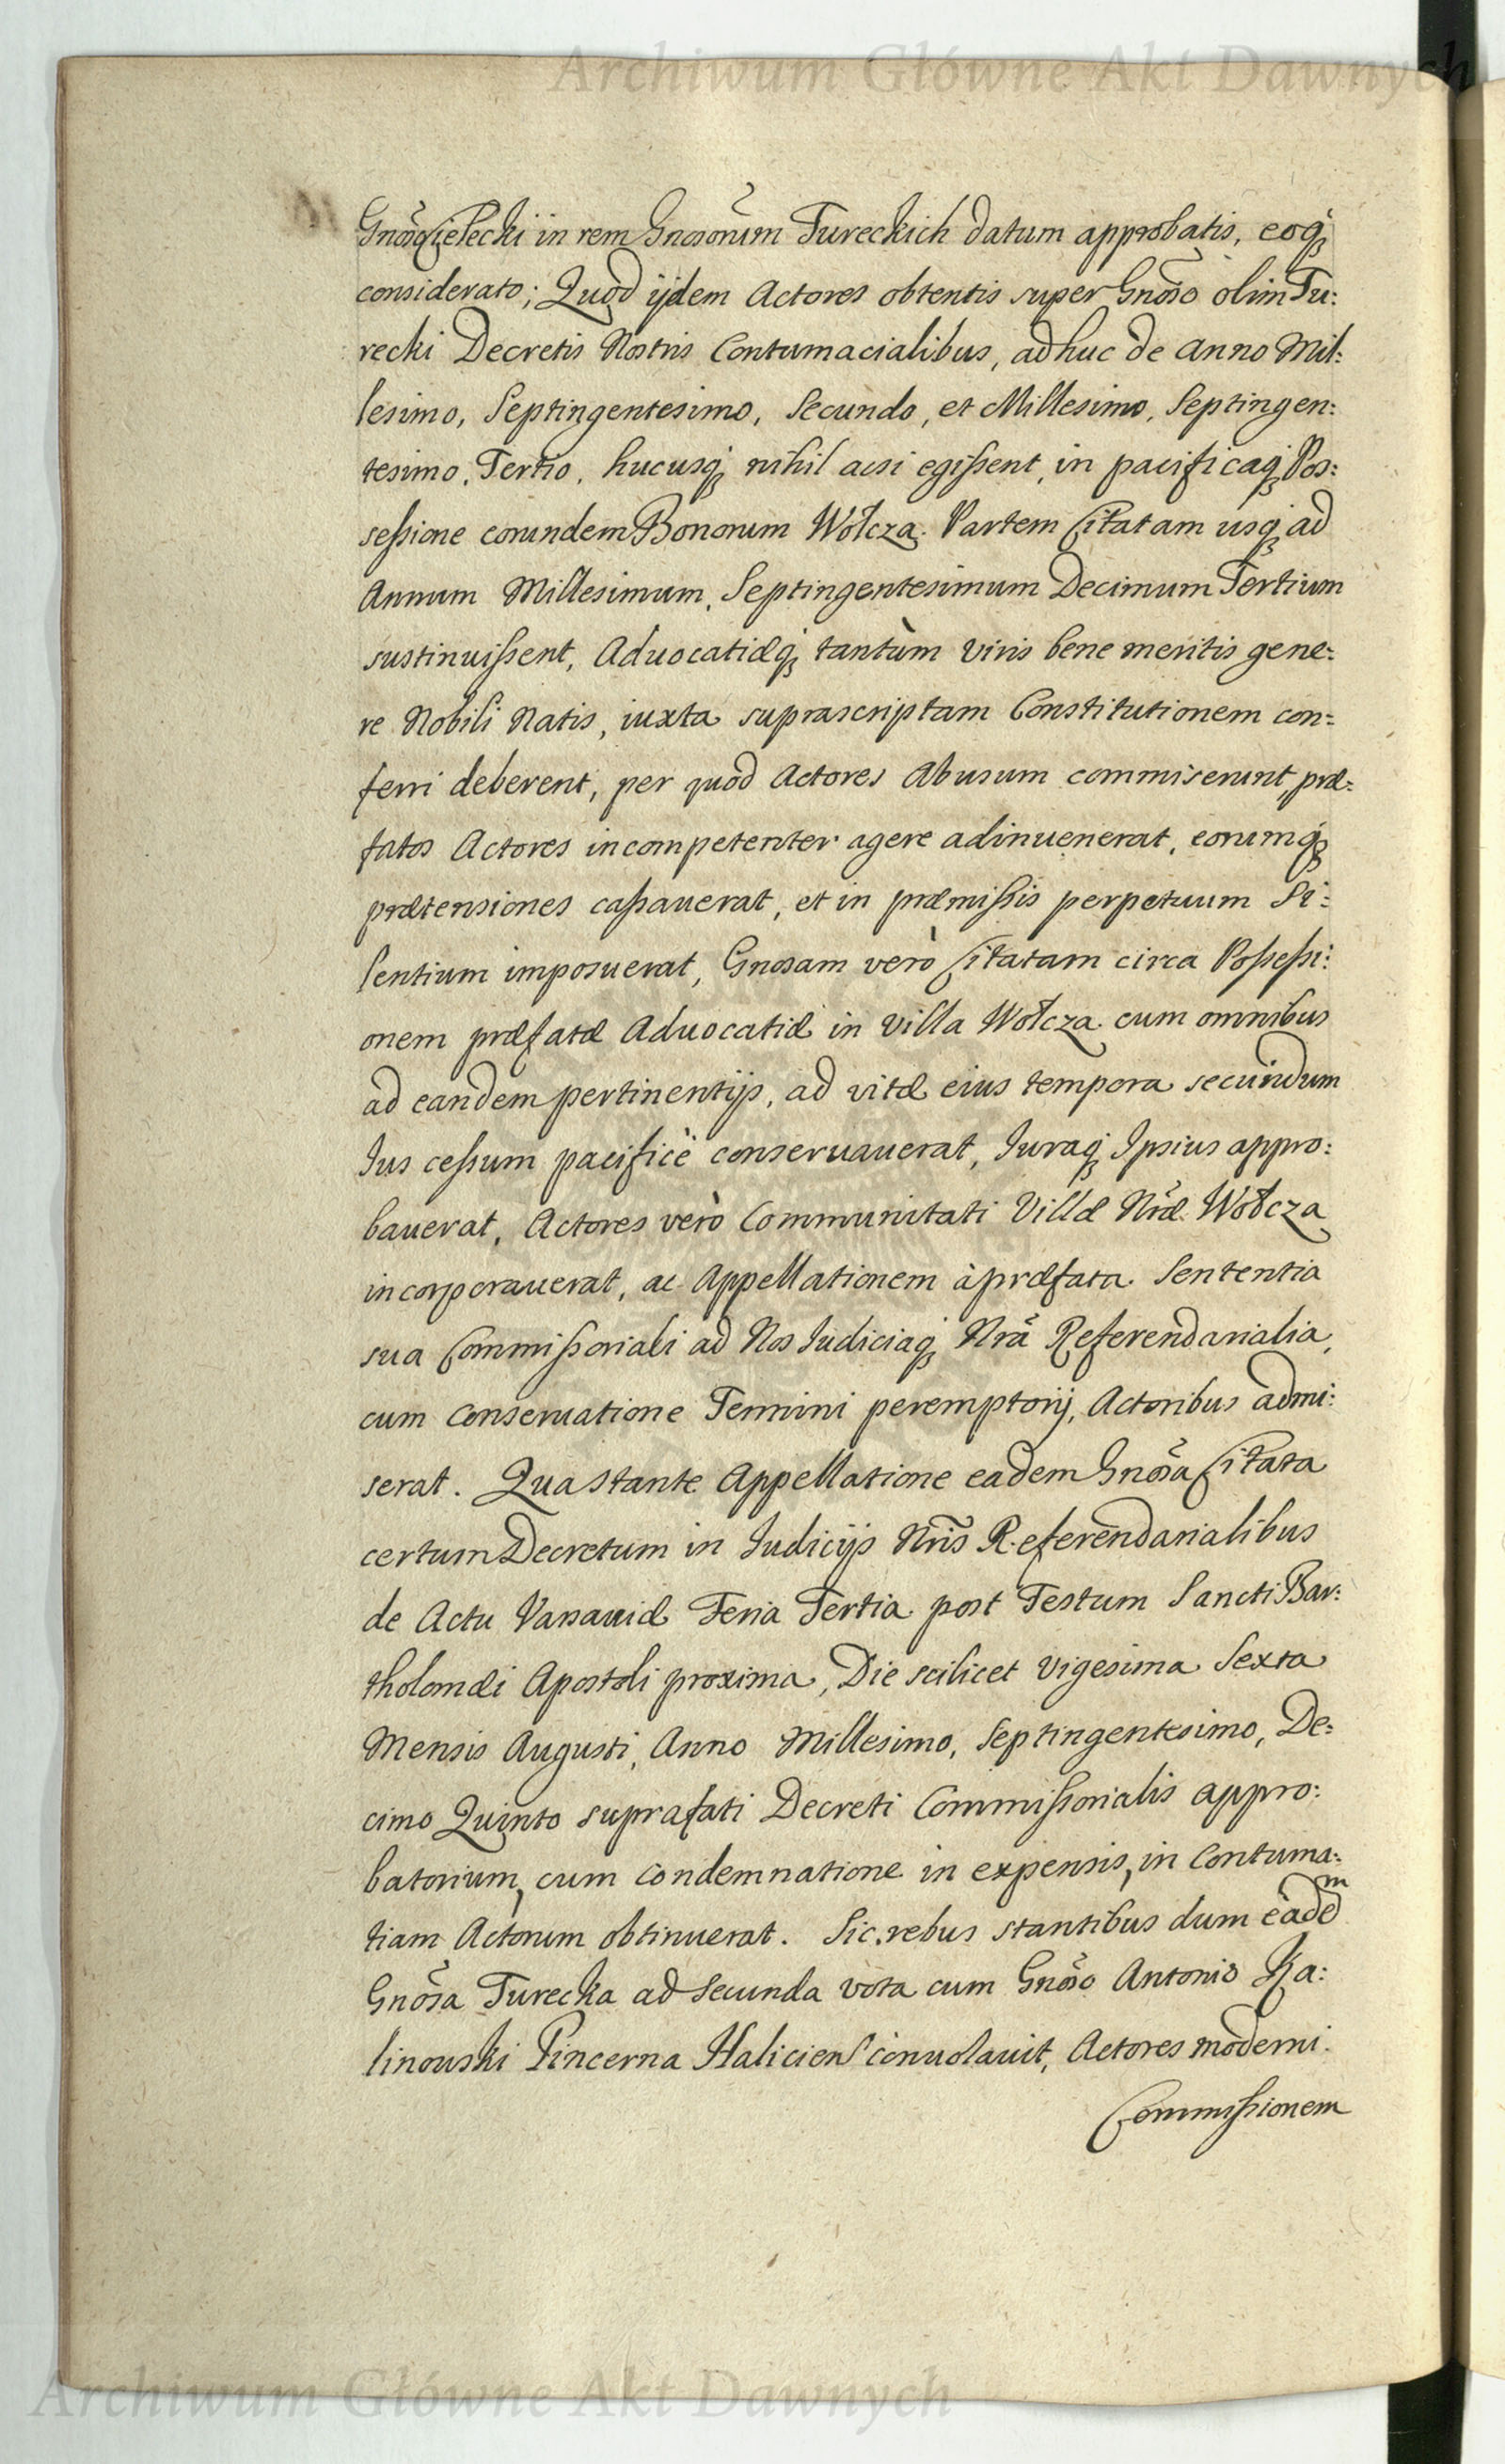 Archiwum Główne Akt Dawnych
Gnõsọ Cielecki in rem Gnosõrum Tureckich datum approbatis, eoq́
considerato; Quod ijdem Actores obtentis super Gnõso olim Tu:
recki Decretis Nostris Contumacialibus, adhuc de Anno Mil:
lesimo, Septingentesimo, Secundo, et Millesimo, Septingen:
tesimo, Tertio, hucusq́ nihil acsi egißent, in pacificaq́ Pos:
seßione eorundem Bonorum Wołcza. Partem Citatam usq́ ad
Annum Millesimum, Septingentesimum Decimum Tertium
sustinuißent, Aduocatiæq́ tantùm Viris bene meritis gene:
re Nobili Natis, iuxta suprascriptam Constitutionem con:
ferri deberent, per quod Actores Abusum commiserunt, præ:
fatos Actores incompetenter agere adinuenerat, eorumq́
prætensiones caßauerat, et in præmißis perpetuum Si:
lentium imposuerat, Gnosam verò Citatam circa Poßeßi:
onem præfatæ Aduocatiæ in Villa Wołcza cum omnibus
ad eandem pertinentijs, ad vitæ eius tempora secundum
Ius ceßum pacificè conseruauerat, Iuraq́ Ipsius appro:
bauerat, Actores verò Communitati Villæ Nræ Wołcza
incorporauerat, ac Appellationem à præfata Sententia
sua Commißoriali ad Nos Iudiciaq́ Nrã Referendarialia,
cum Conseruatione Termini peremptorij, Actoribus admi:
serat. Qua Stante Appellatione eadem Gnõsa Citata
certum Decretum in Iudicijs Nrĩs Referendarialibus
de Actu Varsauiæ Feria Tertia post Festum Sancti Bar:
tholomæi Apostoli proxima, Die scilicet Vigesima Sexta
Mensis Augusti, Anno Millesimo, Septingentesimo, De:
cimo Quinto suprafati Decreti Commißorialis appro:
batorium, cum Condemnatione in expensis, in Contuma:
tiam Actorum obtinuerat. Sic rebus stantibus dum eadẽm
Gnõsa Turecka ad Secunda vota cum Gnõso Antonio Ka:
linouski Pincerna Haliciens conuolauit, Actores moderni
Commißionem
Archiwum Główne Akt Dawnych